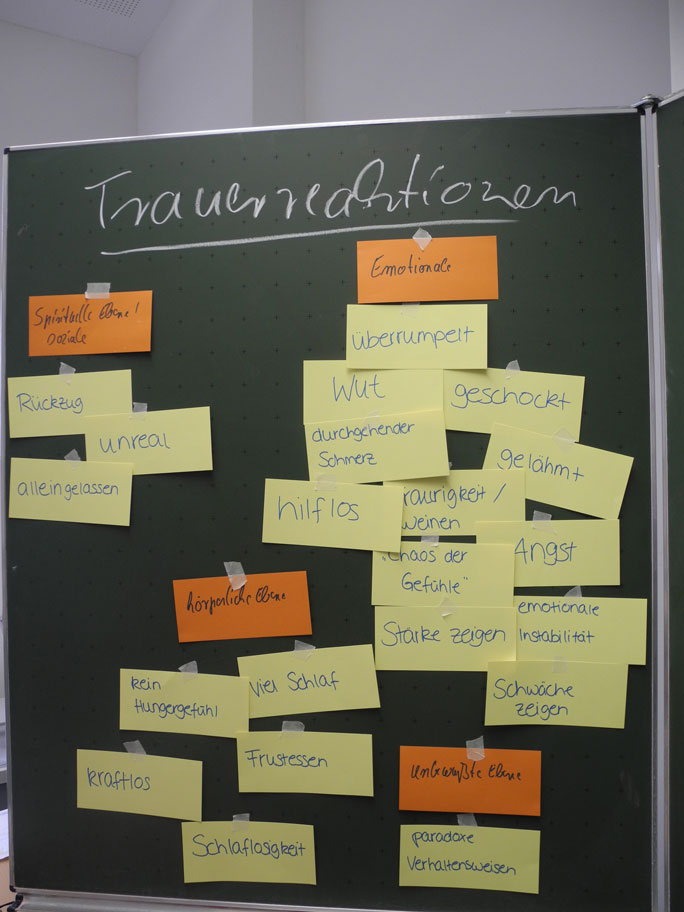 Trauerreaktionen
Spirituelle Ebene /
soziale
Rückzug
unreal
alleingelassen
Emotionale
überrumpelt
Wut
geschockt
durchgehender
Schmerz
gelähmt
hilflos
Traurigkeit /
weinen
Angst
"Chaos der
Gefühle"
Stärke zeigen
emotionale
Instabilität
Schwäche
zeigen
körperliche Ebene
kein
Hungergefühl
viel Schlaf
Frustessen
kraftlos
Schlaflosigkeit
unbewußte Ebene
paradoxe
Verhaltensweisen